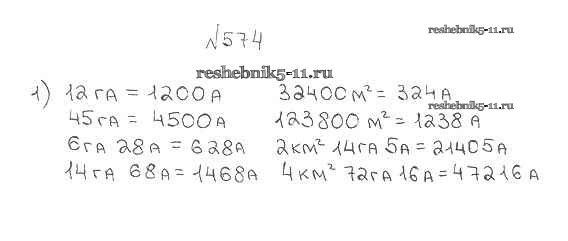 №574
reshebnik5-11.ru
reshebnik5-11.ru
1) 12 га = 1200 а 32400 м² = 324 а
reshebnik5-11.ru
45 га = 4500 а 123800 м² = 1238 а
6 га 28 а = 628 а 2 км² 14 га 5 а = 21405 а
14 га 68 а = 1468 а 4 км² 72 га 16 а = 47216 а